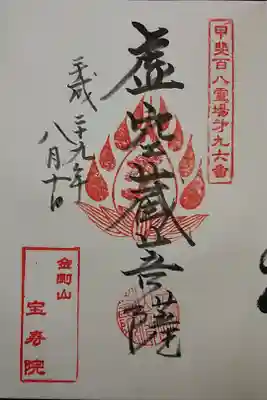 甲斐百八霊場第九六番
虚空蔵菩薩
平成二十九年
八月十日
金剛山
宝寿院